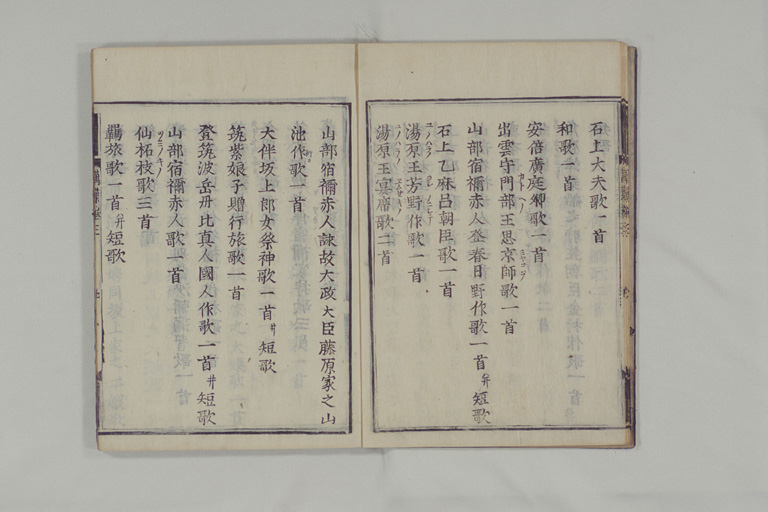 石上大夫歌一首
和歌一首
安倍廣庭卿歌一首
出雲守門部王思京師歌一首
山部宿禰赤人登春日野作歌一首并短歌
石上乙麻呂朝臣歌一首
湯原王芳野作歌一首
湯原王宴席歌二首
山部宿禰赤人詠故大政大臣藤原家之山
池作歌一首
大伴坂上郎女祭神歌一首并短歌
筑紫娘子贈行旅歌一首
登筑波岳丹比真人國人作歌一首并短歌
山部宿禰赤人歌一首
仙柘枝歌三首
羈旅歌一首并短歌